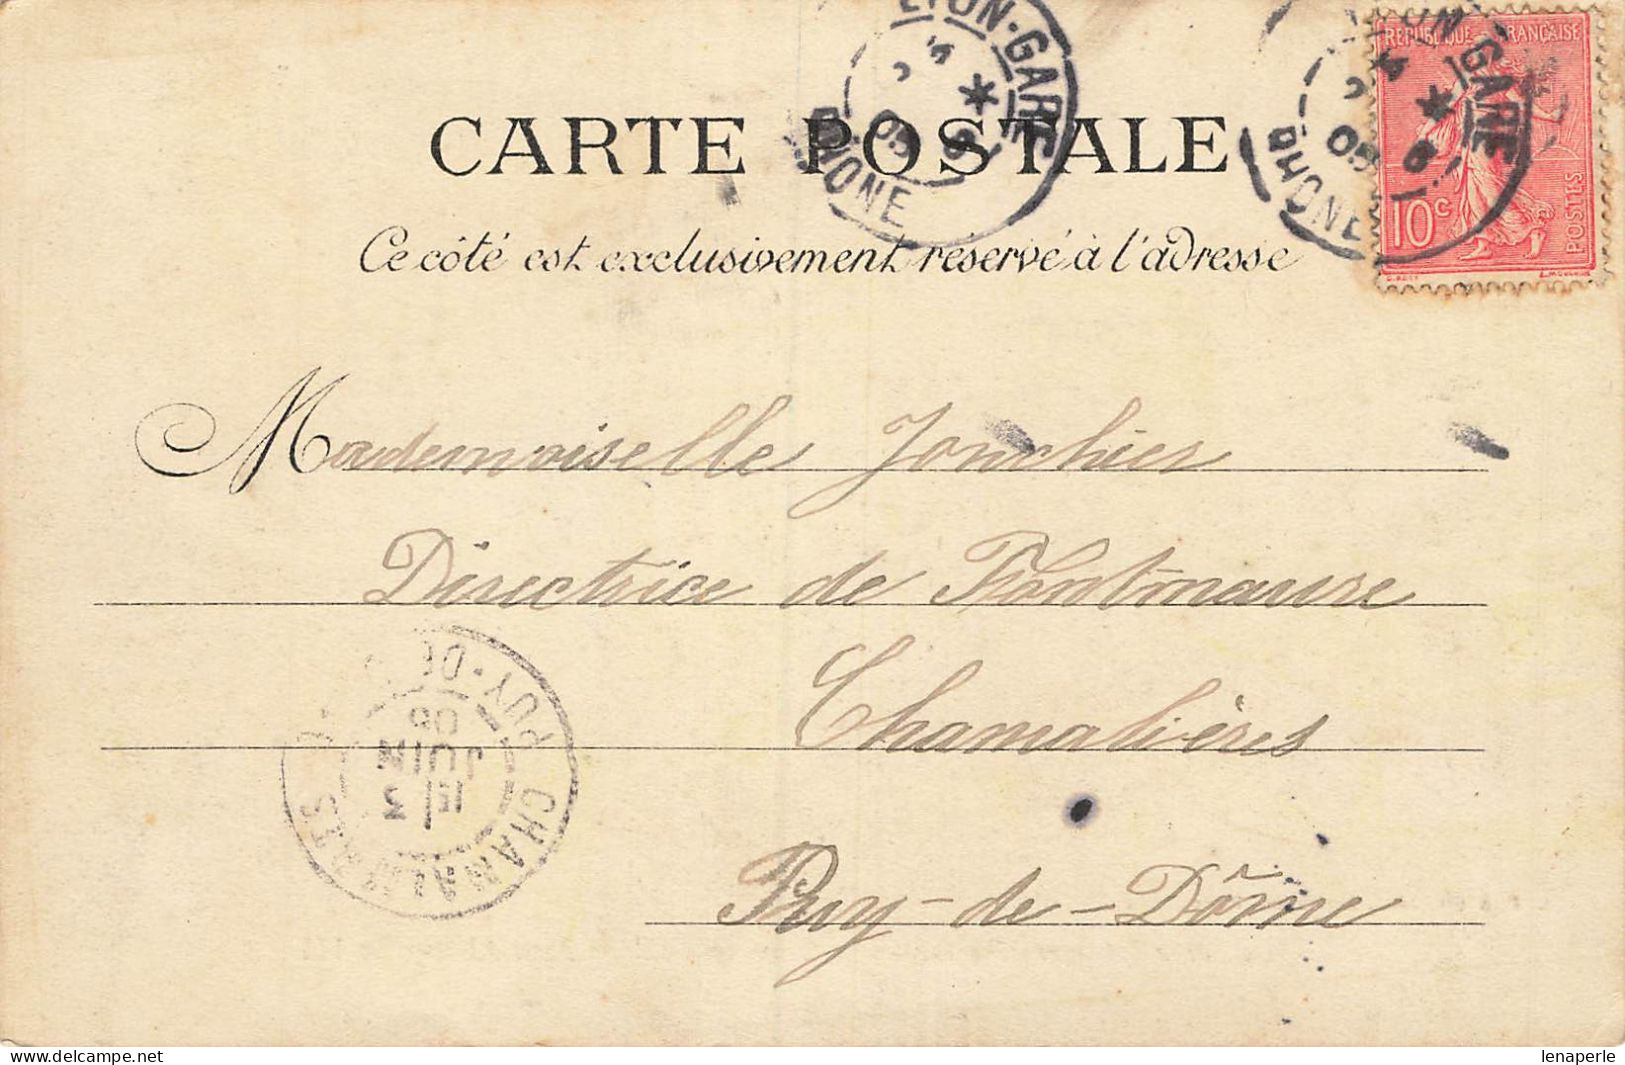 LYON-GARE
RHONE
05
RÉPUBLIQUE FRANÇAISE
10c
POSTES
CARTE POSTALE
Ce côté est exclusivement réservé à l'adresse
Mademoiselle Jonchier
Directrice de Fontmaure
Chamalières
Puy-de-Dôme
CHAMALIERES
PUY-DE-D
15/3
JUIN
05
delcampe.net
lenaperle